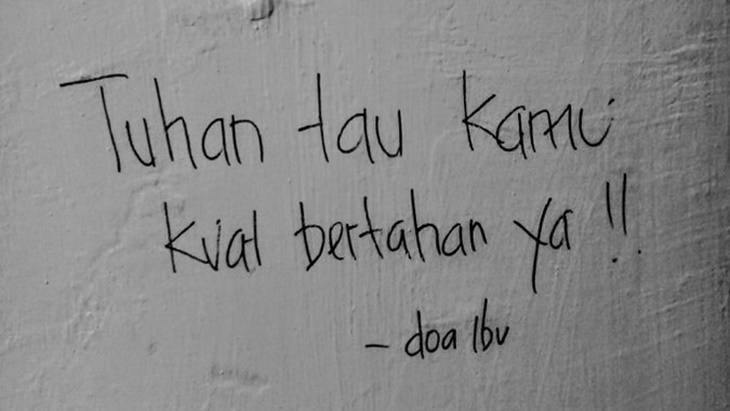 Tuhan tau kamu
kuat bertahan ya !!
- doa Ibu